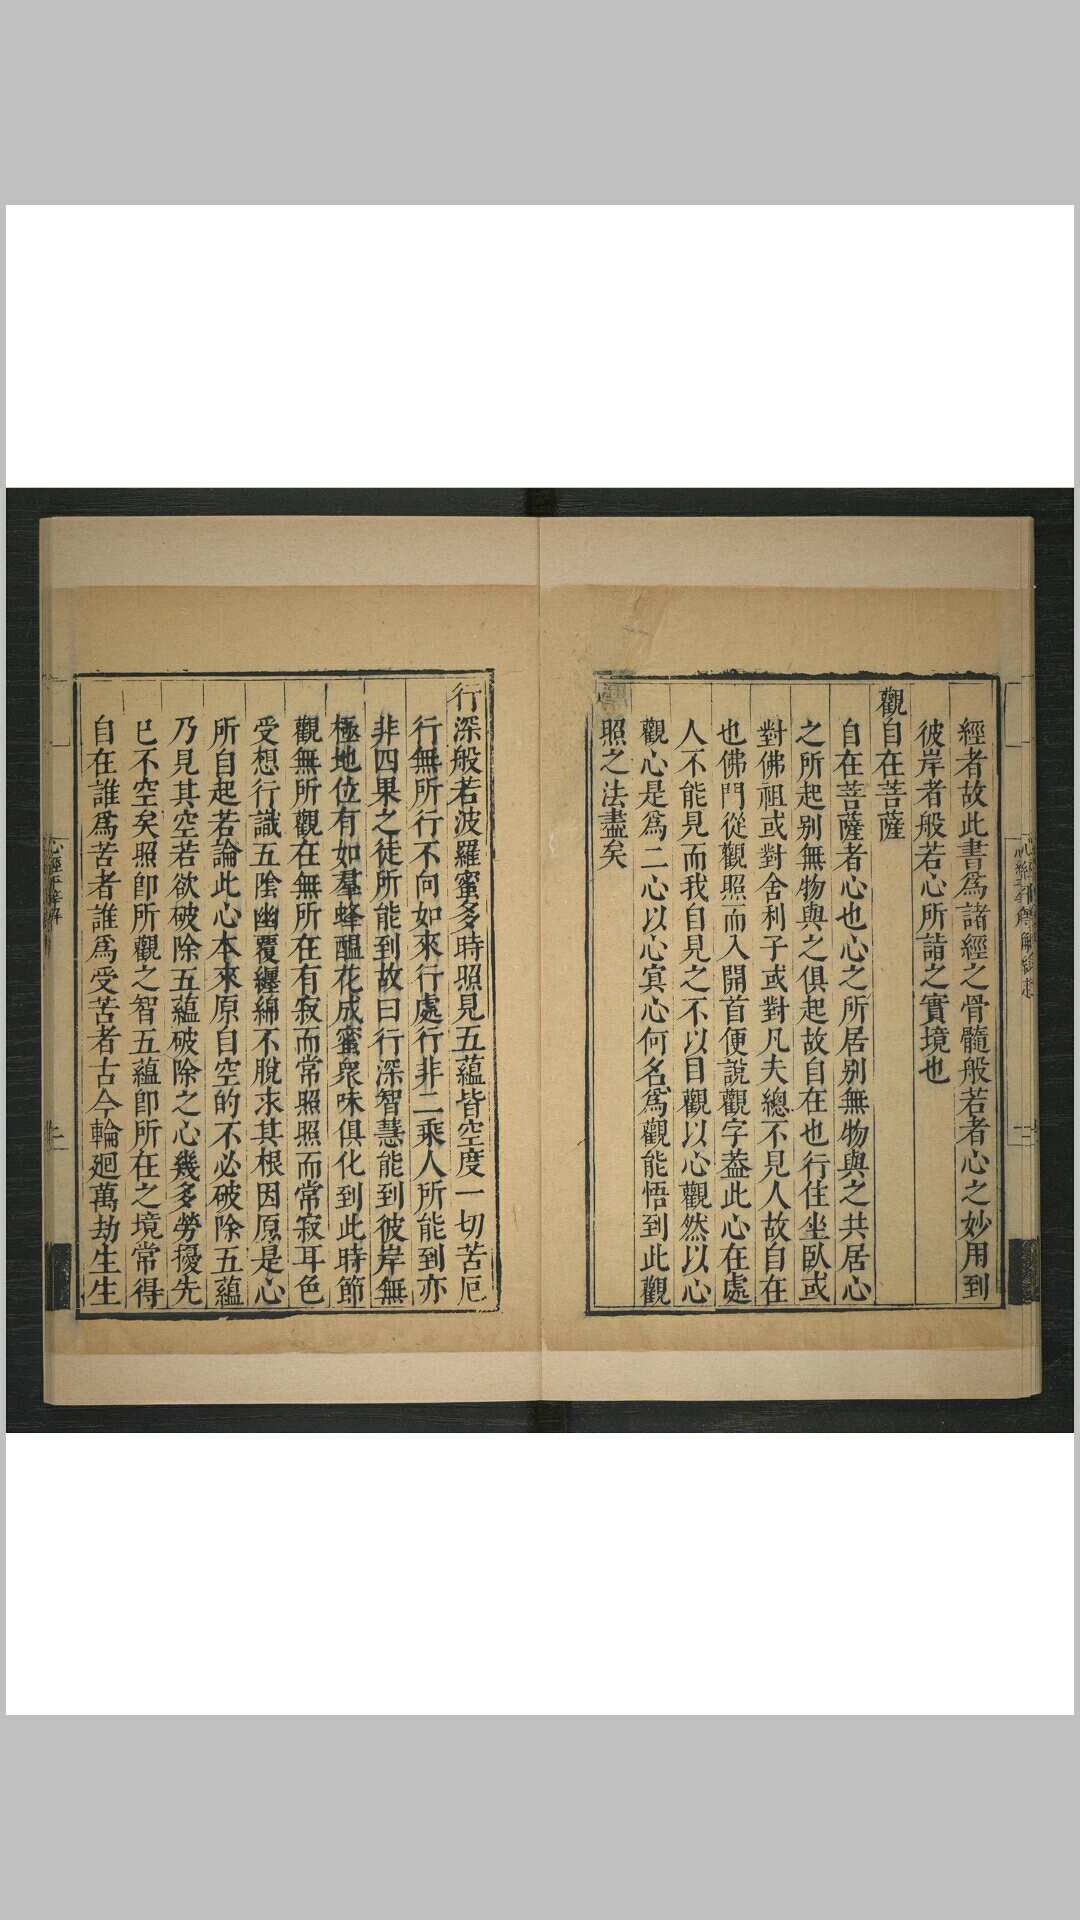 經者故此書爲諸經之骨髓般若者心之妙用到
彼岸者般若心所詣之實境也
觀自在菩薩
自在菩薩者心也心之所居别無物與之共居心
之所起别無物與之俱起故自在也行住坐臥或
對佛祖或對舍利子或對凡夫總不見人故自在
也佛門從觀照而入開首便説觀字葢此心在處
人不能見而我自見之不以目觀以心觀然以心
觀心是爲二心以心冥心何名爲觀能悟到此觀
照之法盡矣
行深般若波羅蜜多時照見五蘊皆空度一切苦厄
行無所行不向如來行處行非二乘人所能到亦
非四果之徒所能到故曰行深智慧能到彼岸無
極地位有如羣蜂醖花成蜜衆味俱化到此時節
觀無所觀在無所在有寂而常照照而常寂耳色
受想行識五陰幽覆纒綿不脫求其根因原是心
所自起若論此心本來原自空的不必破除五蘊
乃見其空若欲破除五蘊破除之心幾多勞擾先
已不空矣照卽所觀之智五蘊卽所在之境常得
自在誰爲苦者誰爲受苦者古今輪廻萬劫生生